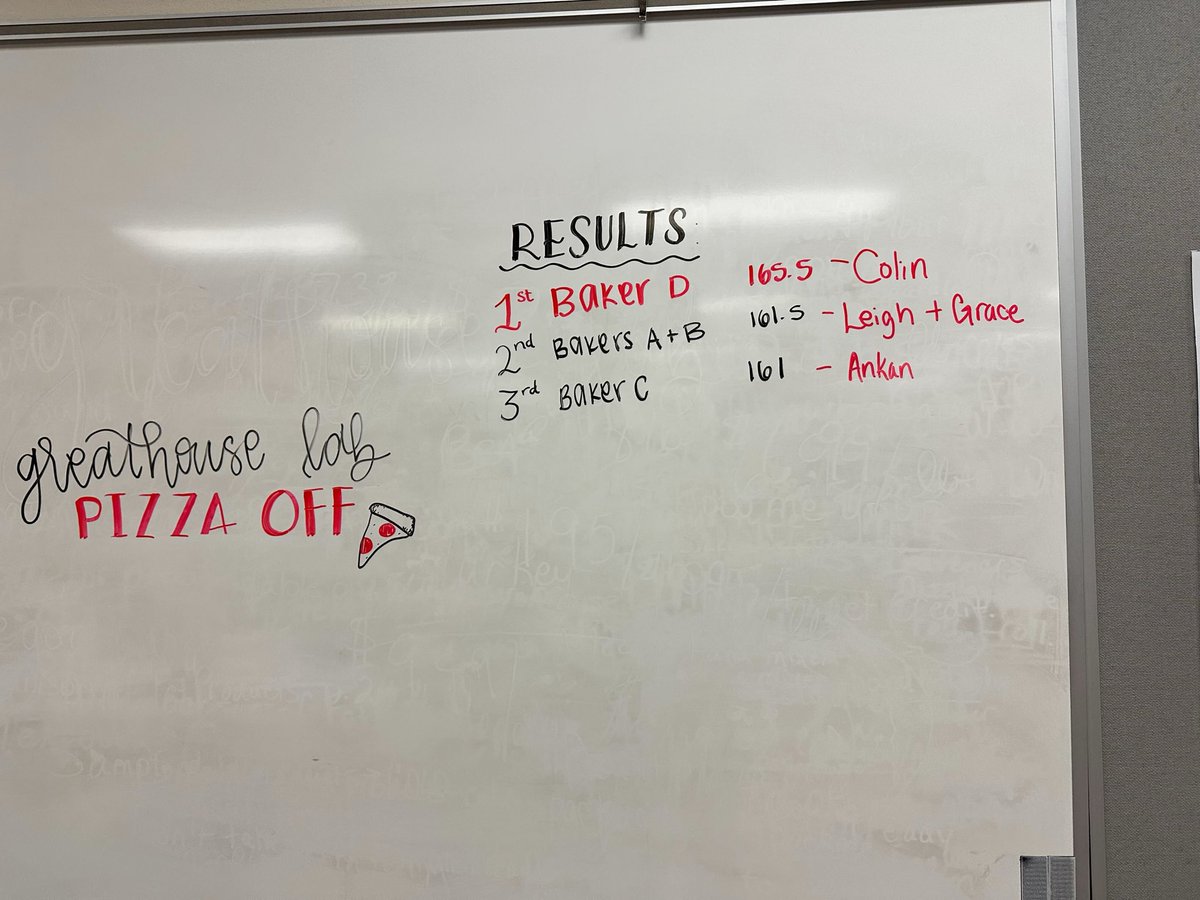 RESULTS
1st Baker D 165.5 - Colin
2nd Bakers A + B 161.5 - Leigh + Grace
3rd Baker C 161 - Ankan
greathouse lab
PIZZA OFF